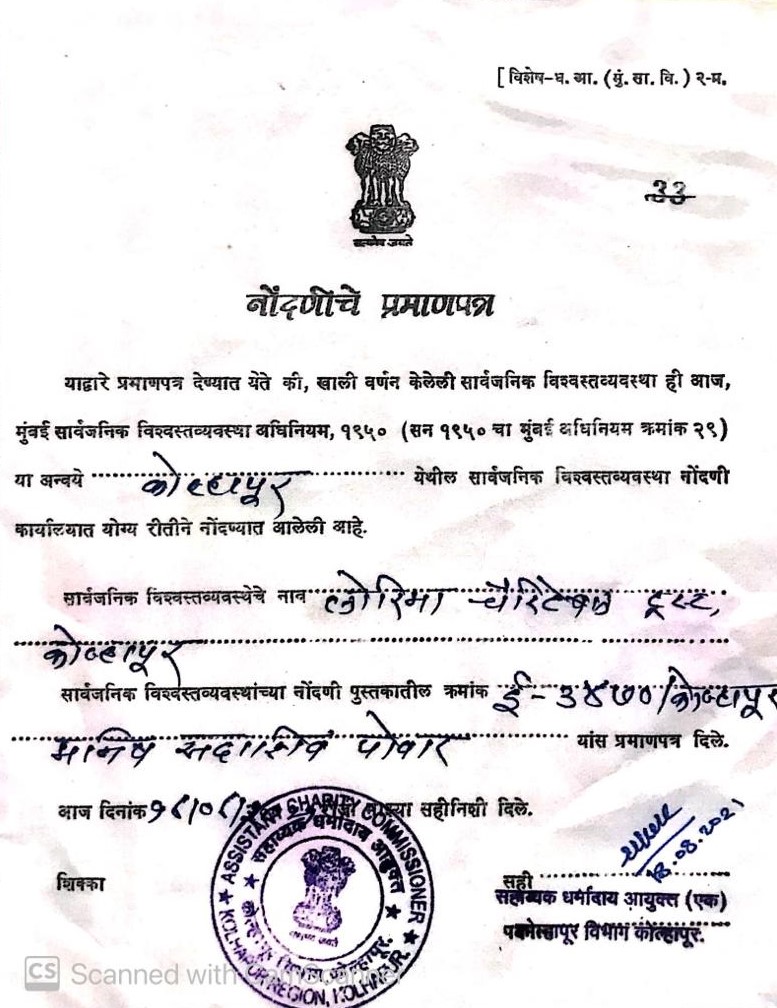 [ विशेष-ध. आ. (मुं. सा. वि.) २-म.
33
सत्यमेव जयते
नोंदणीचे प्रमाणपत्र
याद्वारे प्रमाणपत्र देण्यात येते की, खाली वर्णन केलेली सार्वजनिक विश्वस्तव्यवस्था ही आज,
मुंबई सार्वजनिक विश्वस्तव्यवस्था अधिनियम, १९५० (सन १९५० चा मुंबई अधिनियम क्रमांक २९)
या अन्वये कोल्हापूर येथील सार्वजनिक विश्वस्तव्यवस्था नोंदणी
कार्यालयात योग्य रीतीने नोंदण्यात आलेली आहे.
सार्वजनिक विश्वस्तव्यवस्थेचे नाव लोरिमा चॅरिटेबल ट्रस्ट,
कोल्हापूर
सार्वजनिक विश्वस्तव्यवस्थांच्या नोंदणी पुस्तकातील क्रमांक ई-३४७०/कोल्हापूर
मानिष सदाशिव पोवार यांस प्रमाणपत्र दिले.
आज दिनांक सहीनिशी दिले.
ASSISTANT CHARITY COMMISSIONER
सहाय्यक धर्मादाय आयुक्त
KOLHAPUR REGION, KOLHAPUR.
कोल्हापूर विभाग कोल्हापूर.
शिक्का
18.08.2021
सही
सहाय्यक धर्मादाय आयुक्त (एक)
कोल्हापूर विभाग कोल्हापूर.
CS Scanned with CamScanner